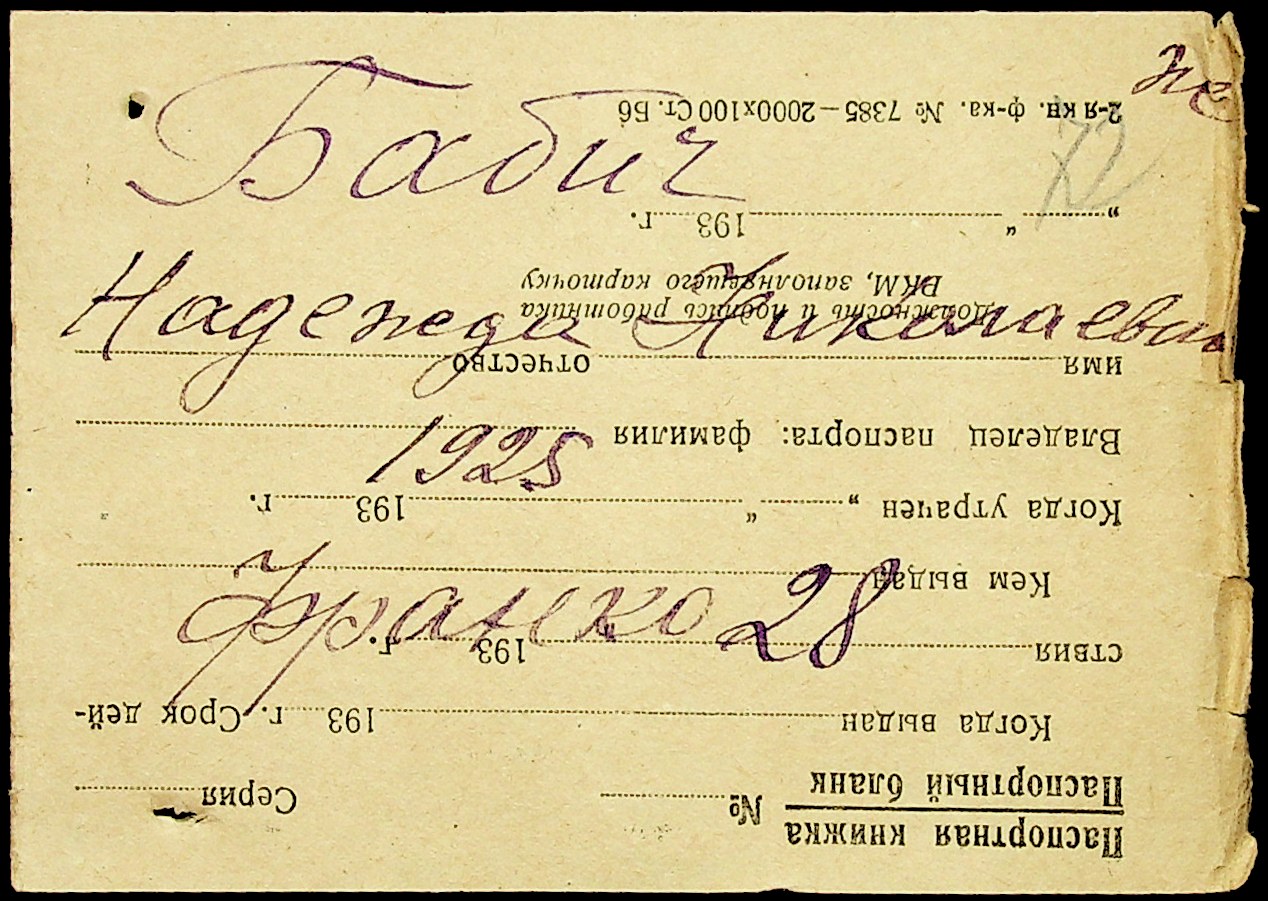 не
Бабич
72
Надежда Николаевна
1925
Франко 28
Паспортная книжка
Паспортный бланк
№ Серия
Когда выдан 193 г. Срок дей-
ствия 193 г.
Кем выдан
Когда утрачен „ “ 193 г.
Владелец паспорта: фамилия
имя отчество
Должность и подпись работника
ВКМ, заполнявшего карточку
„ “ 193 г.
2-я кн. ф-ка. № 7385—2000х100 Ст. Бб